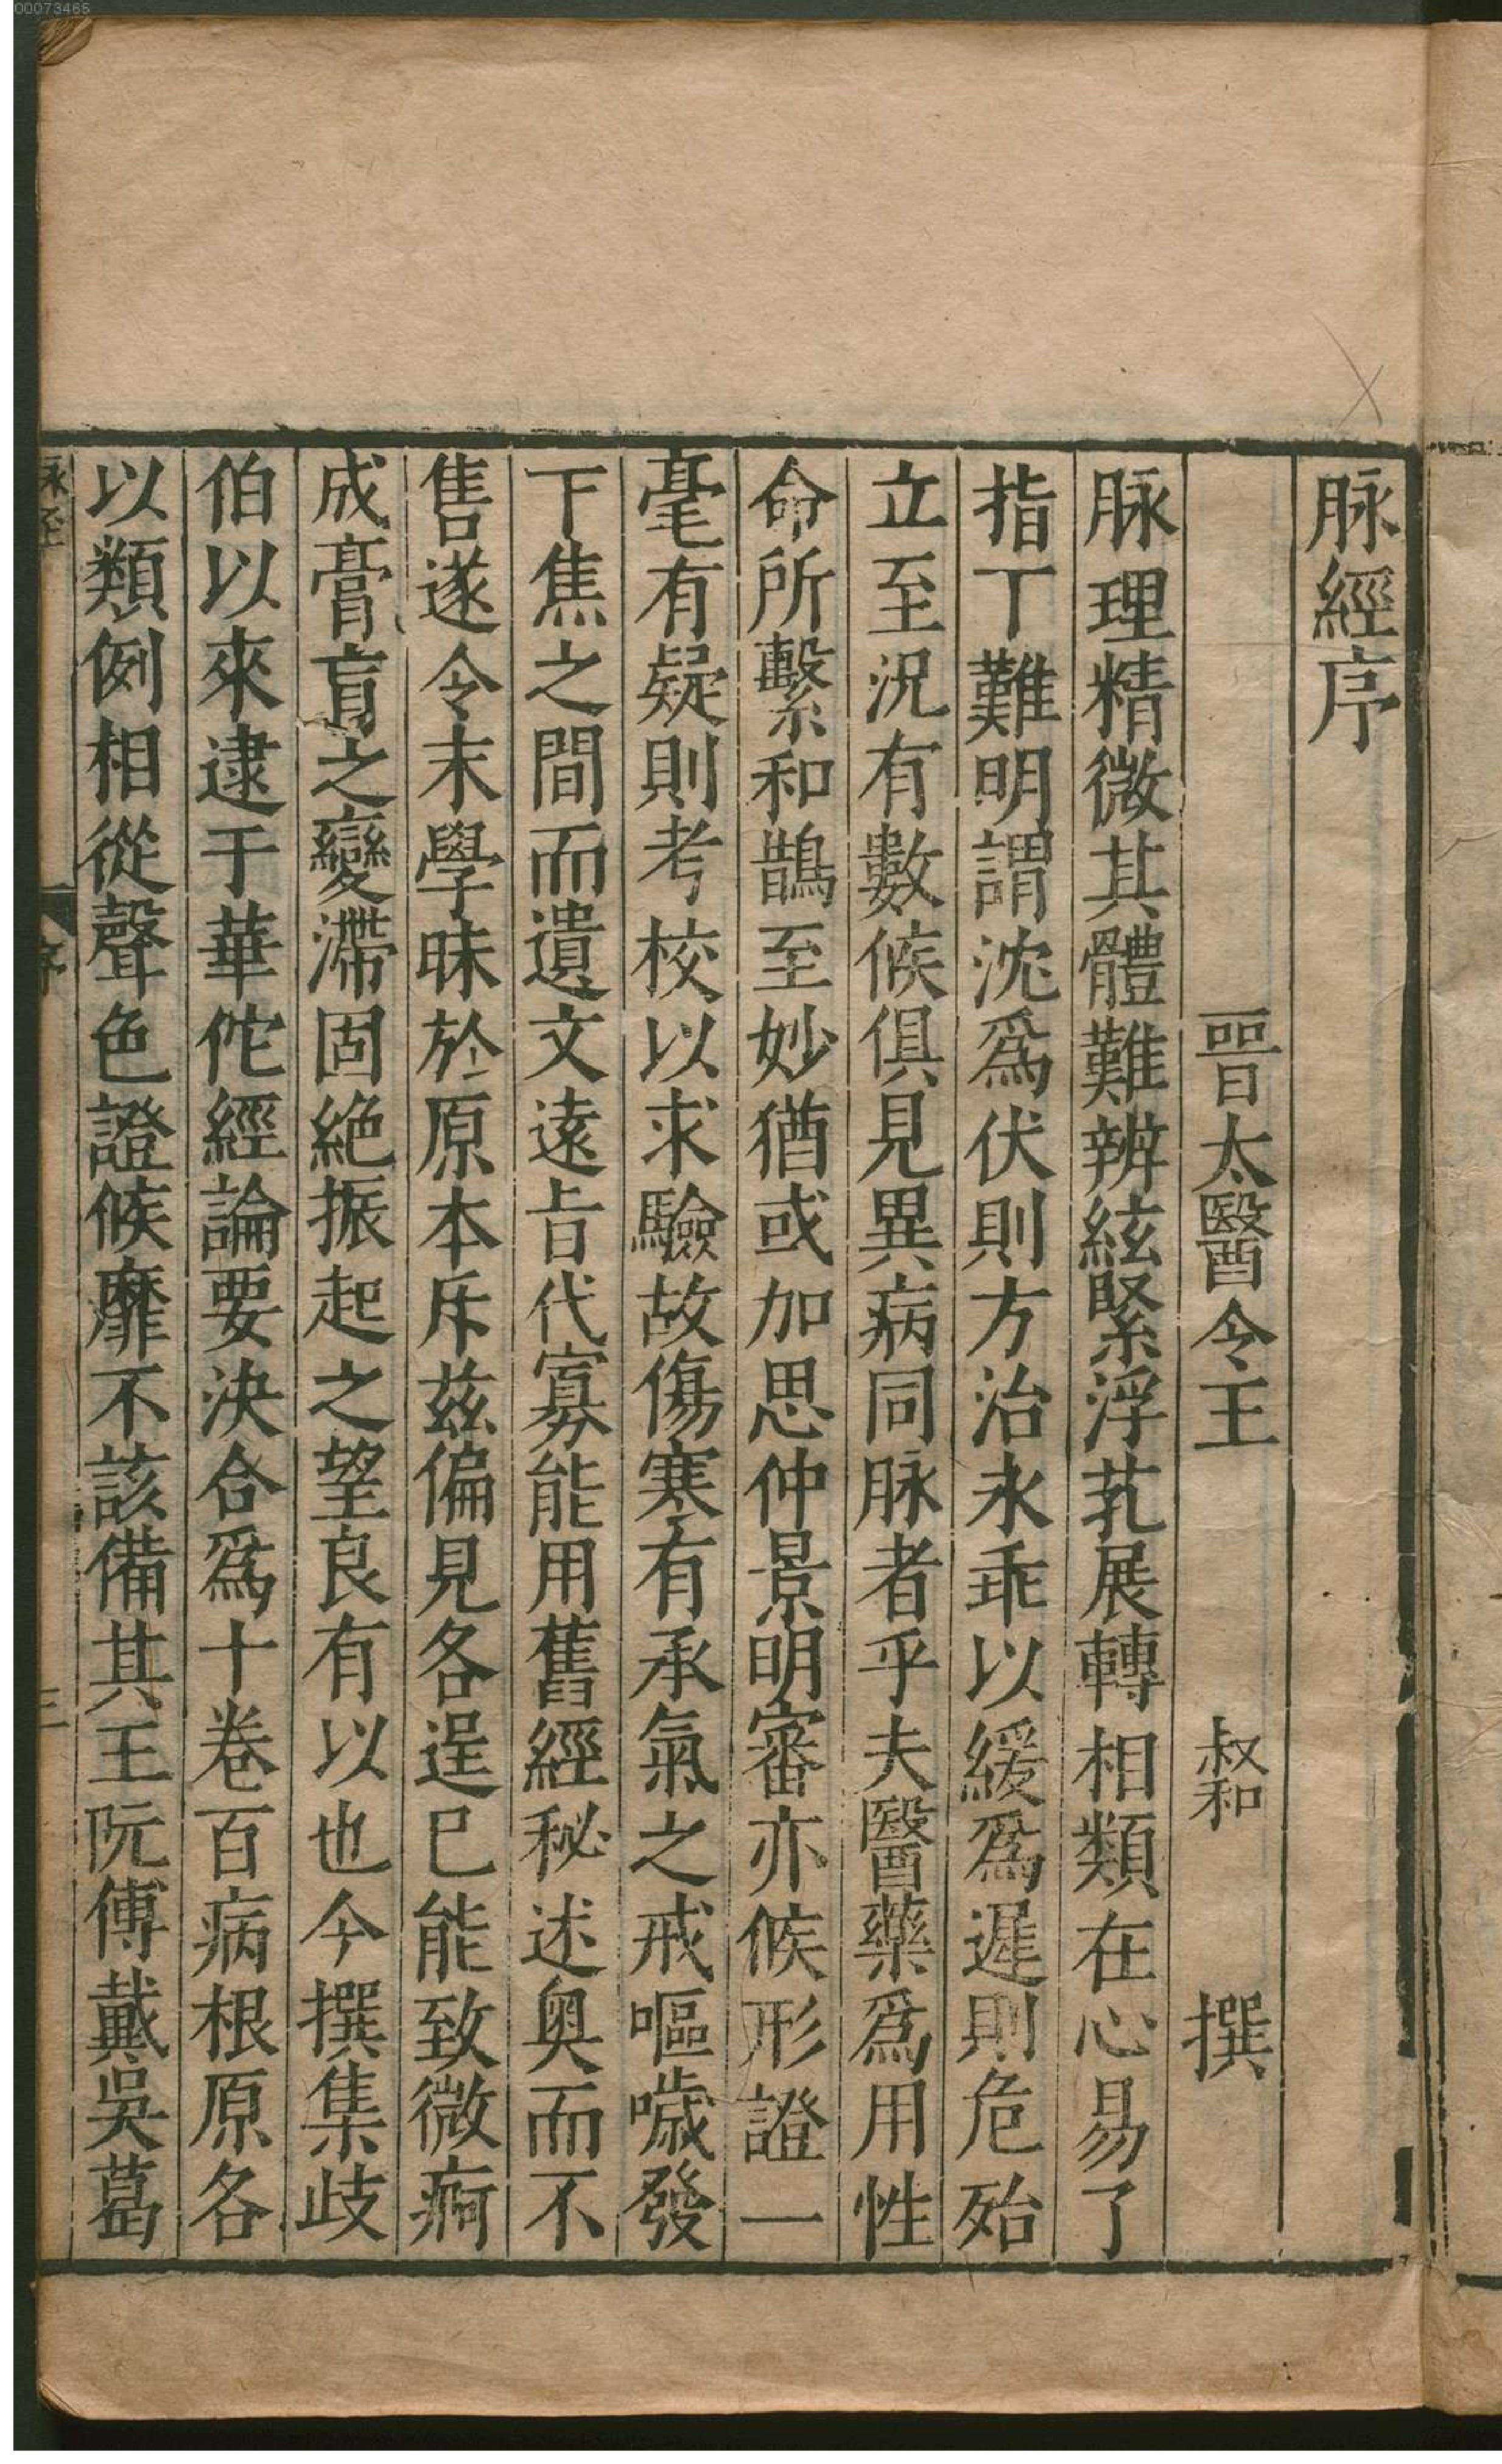 00073465
脉經序
晉太醫令王叔和撰
脉理精微其體難辨絃緊浮芤展轉相類在心易了
指下難明謂沈爲伏則方治永乖以緩爲遲則危殆
立至況有數候俱見異病同脉者乎夫醫藥爲用性
命所繫和鵲至妙猶或加思仲景明審亦候形證一
毫有疑則考校以求驗故傷寒有承氣之戒嘔噦發
下焦之間而遺文遠旨代寡能用舊經秘述奥而不
售遂令末學昧於原本斥兹偏見各逞已能致微痾
成膏肓之變滯固絶振起之望良有以也今撰集歧
伯以來逮于華佗經論要決合爲十卷百病根原各
以類例相從聲色證候靡不該備其王阮傅戴吳葛
序
三